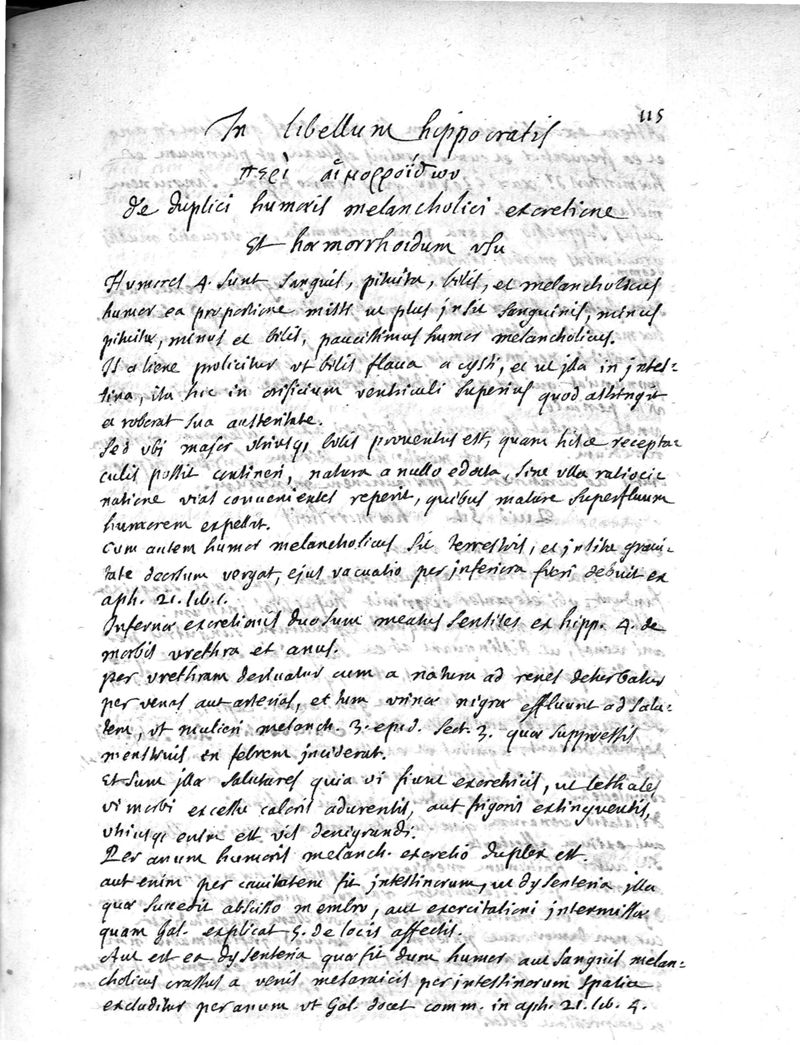 115
In libellum hippocratis
περὶ αἱμορροίδων
de duplici humoris melancholici excretione
Et hæmorrhoidum usu
Humores 4. sunt sanguis, pituita, bilis, et melancholicus
humor ea proportione misti ut plus insit sanguinis, minus
pituitæ, minus et bilis, paucissimus humor melancholicus.
Is a liene prolicitur ut bilis flava a cysti, et ut illa in intes-
tina, ita hic in orificium ventriculi superius quod astringit
et roborat sua austeritate.
Sed ubi major utriusq; bilis proventus est, quam hisce recepta-
culis possit contineri, natura a nullo edocta, sine ulla ratioci-
natione vias convenientes reperit, quibus mature superfluum
humorem expellat.
Cum autem humor melancholicus sit terrestris, et insita gravi-
tate deorsum vergat, ejus vacuatio per inferiora fieri debuit ex
aph. 21. lib. 1.
Infernæ excretionis duo sunt meatus sentites ex hipp. 4. de
morbis urethra et anus.
per urethram derivatur cum a natura ad renes deturbatur
per venas aut arterias, et tum urinæ nigræ effluunt ad salu-
tem, ut mulieri melanch. 3. epid. sect. 3. quæ suppressis
menstruis in febrem inciderat.
Et sunt illæ salutares quia vi fiunt excretricis, ut lethales
vi morbi excessu caloris adurentis, aut frigoris extinguentis,
utriusq; enim est vis denigrandi.
Per anum humoris melanch. excretio duplex est.
aut enim per cavitatem fit intestinorum, ut dysenteria illa
quæ succedit abscisso membro, aut exercitationi intermissæ
quam Gal. explicat 5. de locis affectis.
Aut est ea dysenteria quæ fit dum humor aut sanguis melan-
cholicus crassus a venis mesaraicis per intestinorum spatia
excluditur per anum ut Gal. docet comm. in aph. 21. lib. 4.